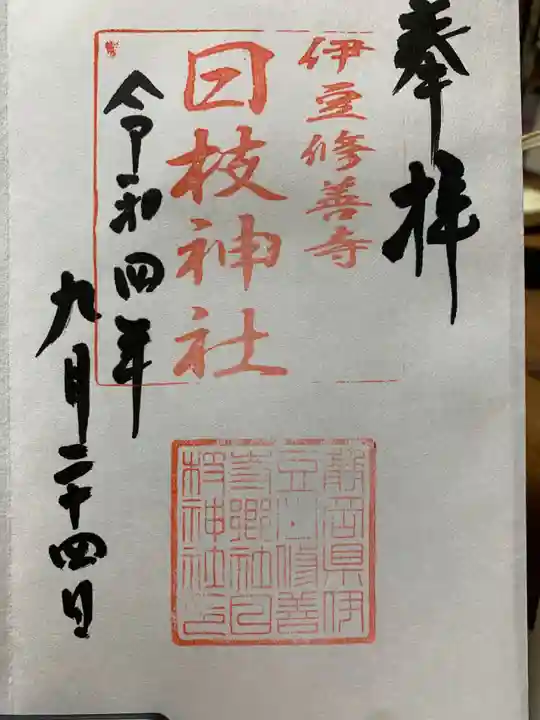 奉拝
伊豆修善寺
日枝神社
令和四年
九月二十四日
静岡県伊
豆国修善
寺郷社日
枝神社印